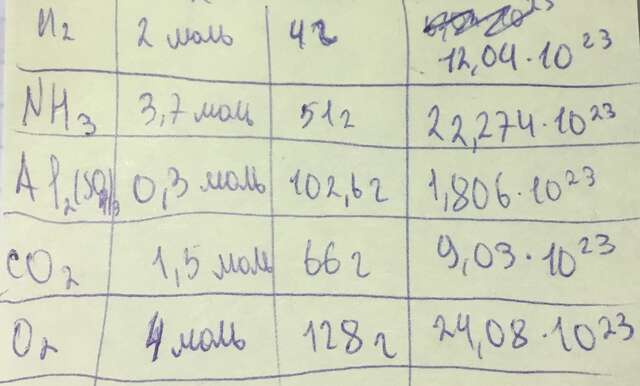 H₂ 2 моль 4г 12,04·10²³
NH₃ 3,7 моль 51г 22,274·10²³
Al₂(SO₄)₃ 0,3 моль 102,6г 1,806·10²³
CO₂ 1,5 моль 66г 9,03·10²³
O₂ 4 моль 128г 24,08·10²³